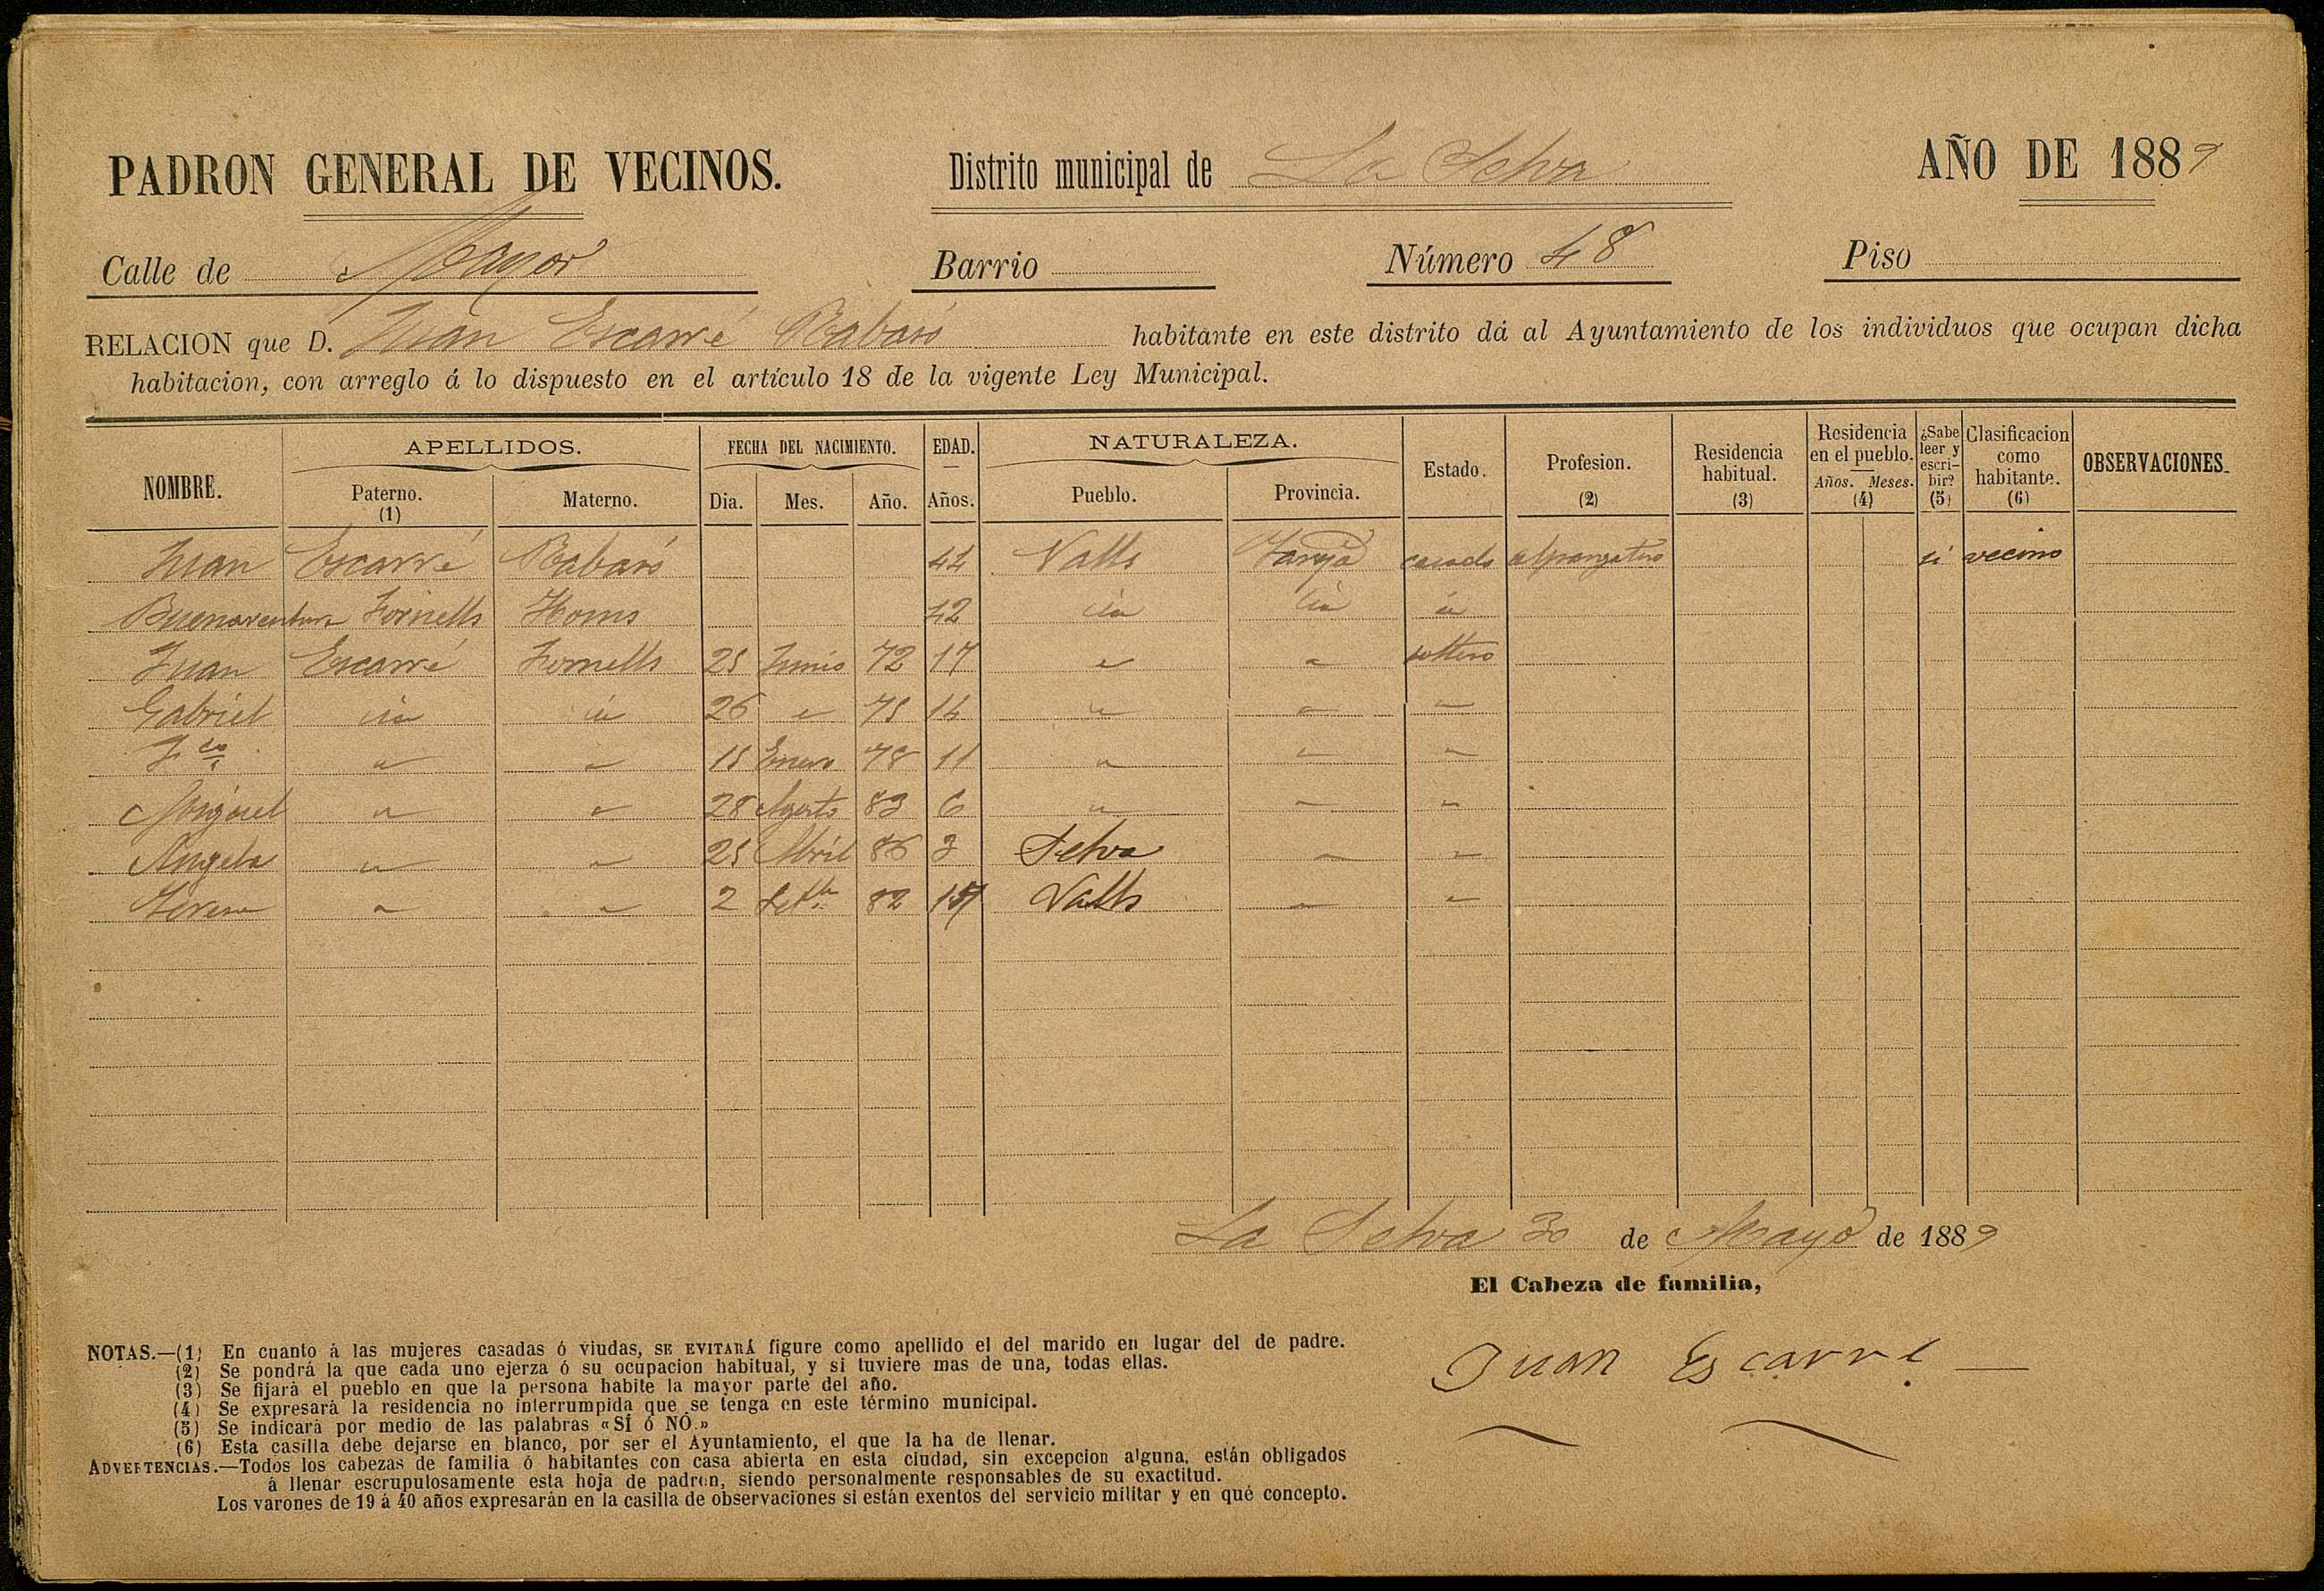 PADRON GENERAL DE VECINOS. Distrito municipal de La Selva AÑO DE 1889
Calle de Mayor Barrio Número 48 Piso
RELACION que D. Juan Escarré Rabasó habitante en este distrito dá al Ayuntamiento de los individuos que ocupan dicha
habitacion, con arreglo á lo dispuesto en el artículo 18 de la vigente Ley Municipal.
NOMBRE. APELLIDOS. Paterno. (1) Materno. FECHA DEL NACIMIENTO. Dia. Mes. Año. EDAD. Años. NATURALEZA. Pueblo. Provincia. Estado. Profesion. (2) Residencia habitual. (3) Residencia en el pueblo. Años. Meses. (4) ¿Sabe leer y escribir? (5) Clasificacion como habitante. (6) OBSERVACIONES.
Juan Escarré Rabasó 44 Valls Tarragª casado alpargatero si vecino
Buenaventura Fornells Homs 42 id id id
Juan Escarré Fornells 25 Junio 72 17 " " soltero
Gabriel id id 26 " 75 14 " " "
Fco " " 15 Enero 78 11 " " "
Miguel " " 28 Agosto 83 6 " " "
Angela " " 25 Abril 86 3 Selva " "
Teresa " " 2 Setbe 82 Valls " "
La Selva 30 de Mayo de 1889
El Cabeza de familia,
Juan Escarré
NOTAS.—(1) En cuanto á las mujeres casadas ó viudas, SE EVITARÁ figure como apellido el del marido en lugar del de padre.
(2) Se pondrá la que cada uno ejerza ó su ocupacion habitual, y si tuviere mas de una, todas ellas.
(3) Se fijará el pueblo en que la persona habite la mayor parte del año.
(4) Se expresará la residencia no interrumpida que se tenga en este término municipal.
(5) Se indicará por medio de las palabras «SÍ ó NÓ.»
(6) Esta casilla debe dejarse en blanco, por ser el Ayuntamiento, el que la ha de llenar.
ADVERTENCIAS.—Todos los cabezas de familia ó habitantes con casa abierta en esta ciudad, sin excepcion alguna, están obligados
á llenar escrupulosamente esta hoja de padron, siendo personalmente responsables de su exactitud.
Los varones de 19 á 40 años expresarán en la casilla de observaciones si están exentos del servicio militar y en qué concepto.